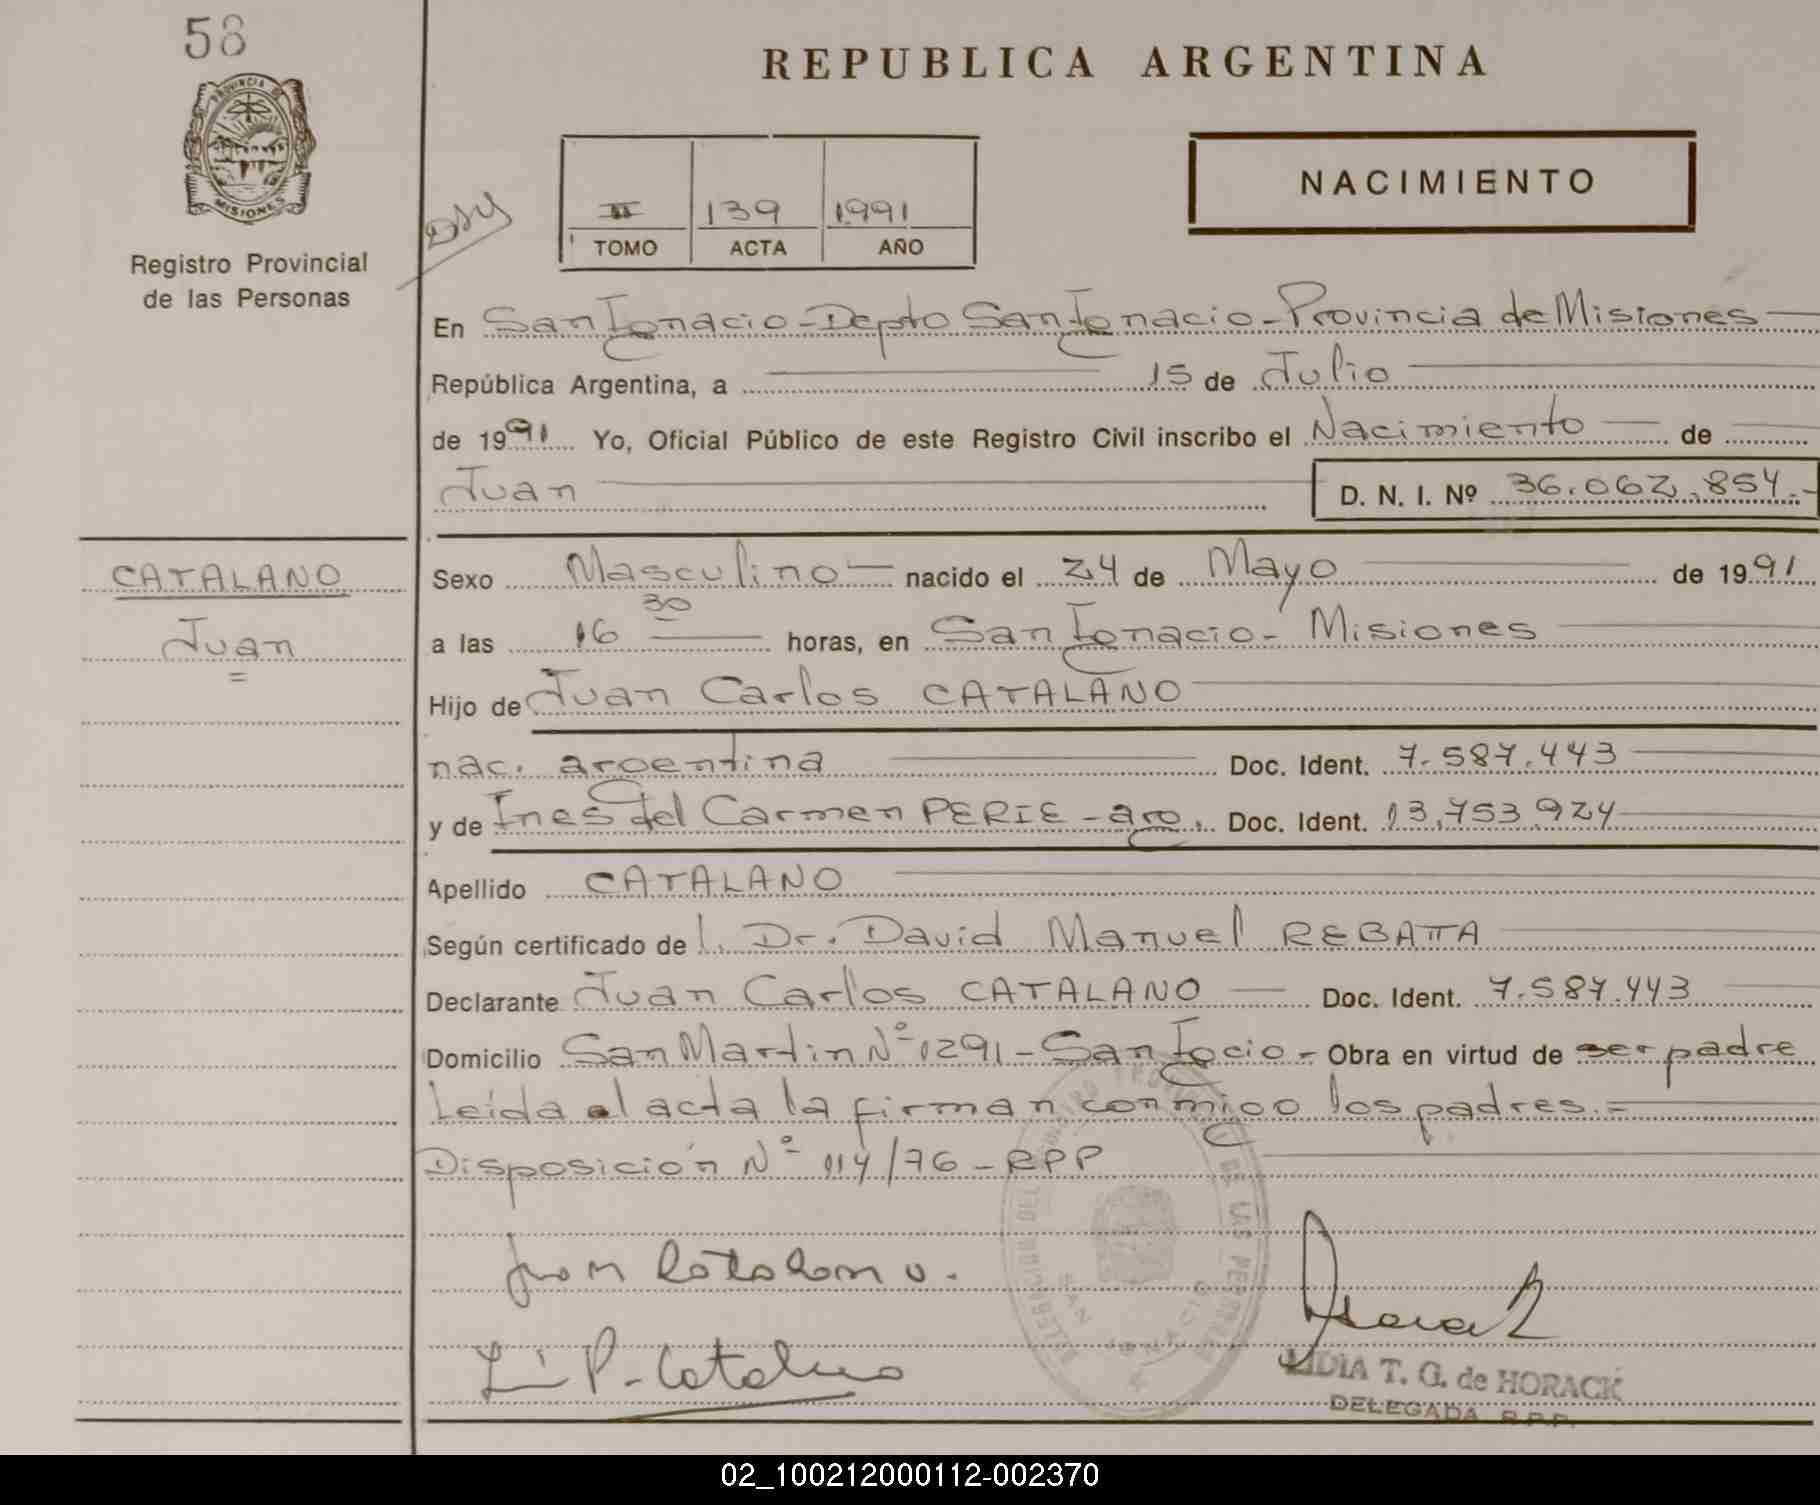 58
REPUBLICA ARGENTINA
PROVINCIA DE
MISIONES
Registro Provincial
de las Personas
II 139 1991
TOMO ACTA AÑO
NACIMIENTO
En San Ignacio - Depto San Ignacio - Provincia de Misiones
República Argentina, a 15 de Julio
de 1991 Yo, Oficial Público de este Registro Civil inscribo el Nacimiento de
Juan
D. N. I. Nº 36.062.854.-
CATALANO
Juan
Sexo Masculino nacido el 24 de Mayo de 1991
a las 16 30 horas, en San Ignacio - Misiones
Hijo de Juan Carlos CATALANO
nac. argentina Doc. Ident. 7.587.443
y de Ines del Carmen PERIE - arg. Doc. Ident. 13.753.924
Apellido CATALANO
Según certificado de l. Dr. David Manuel REBATTA
Declarante Juan Carlos CATALANO Doc. Ident. 7.587.443
Domicilio San Martin Nº 1291 - San Igcio - Obra en virtud de ser padre
Leída el acta la firman conmigo los padres.=
Disposición Nº 114/76 - RPP
Juan Catalano.
P. Catalano
Horack
SAN IGNACIO
LIDIA T. G. de HORACK
DELEGADA R.P.P.
02_100212000112-002370